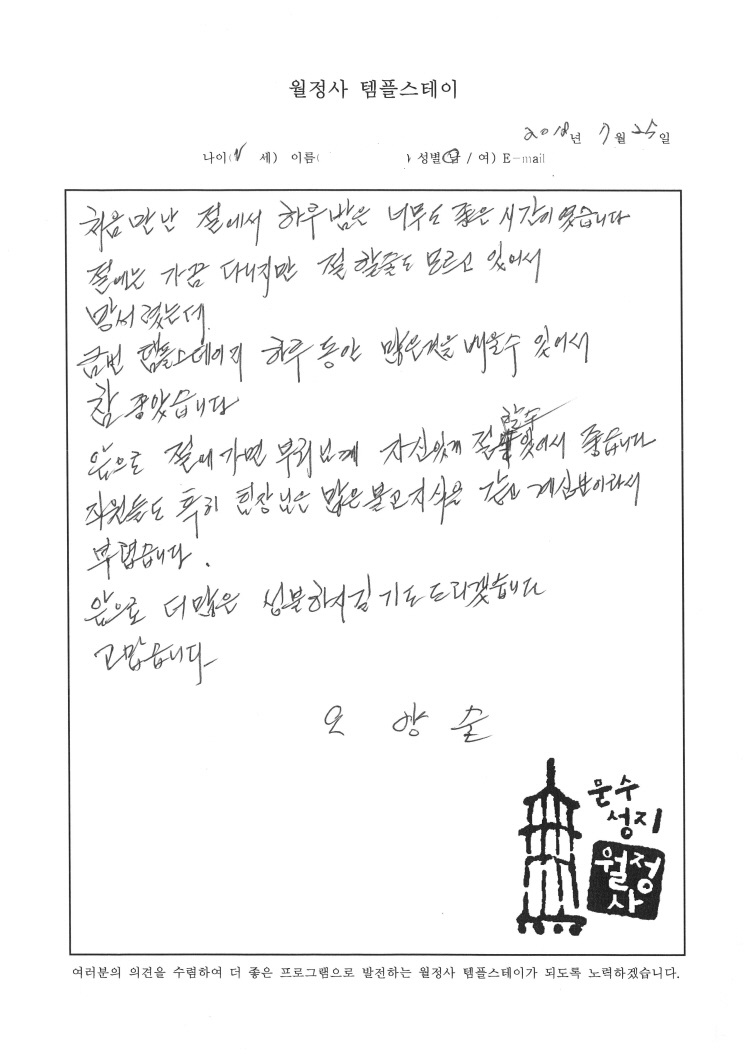 월정사 템플스테이
2018년 7월 25일
나이( 세) 이름( ) 성별(남 / 여) E-mail
처음 만난 절에서 하루밤은 너무도 좋은 시간이였습니다
절에는 가끔 다니지만 절 할줄도 모르고 있어서
망서렸는데
금번 템플스테이 하루 동안 많은것을 배울수 있어서
참 좋았습니다
앞으로 절에 가면 부처님께 자신있게 절 할수 있어서 좋습니다
직원들도 특히 팀장님은 많은 불교지식을 갖고 계신분이라서
부럽습니다.
앞으로 더많은 성불하시길 기도드리겠습니다
고맙습니다
오 양 술
문수
성지
월정
사
여러분의 의견을 수렴하여 더 좋은 프로그램으로 발전하는 월정사 템플스테이가 되도록 노력하겠습니다.